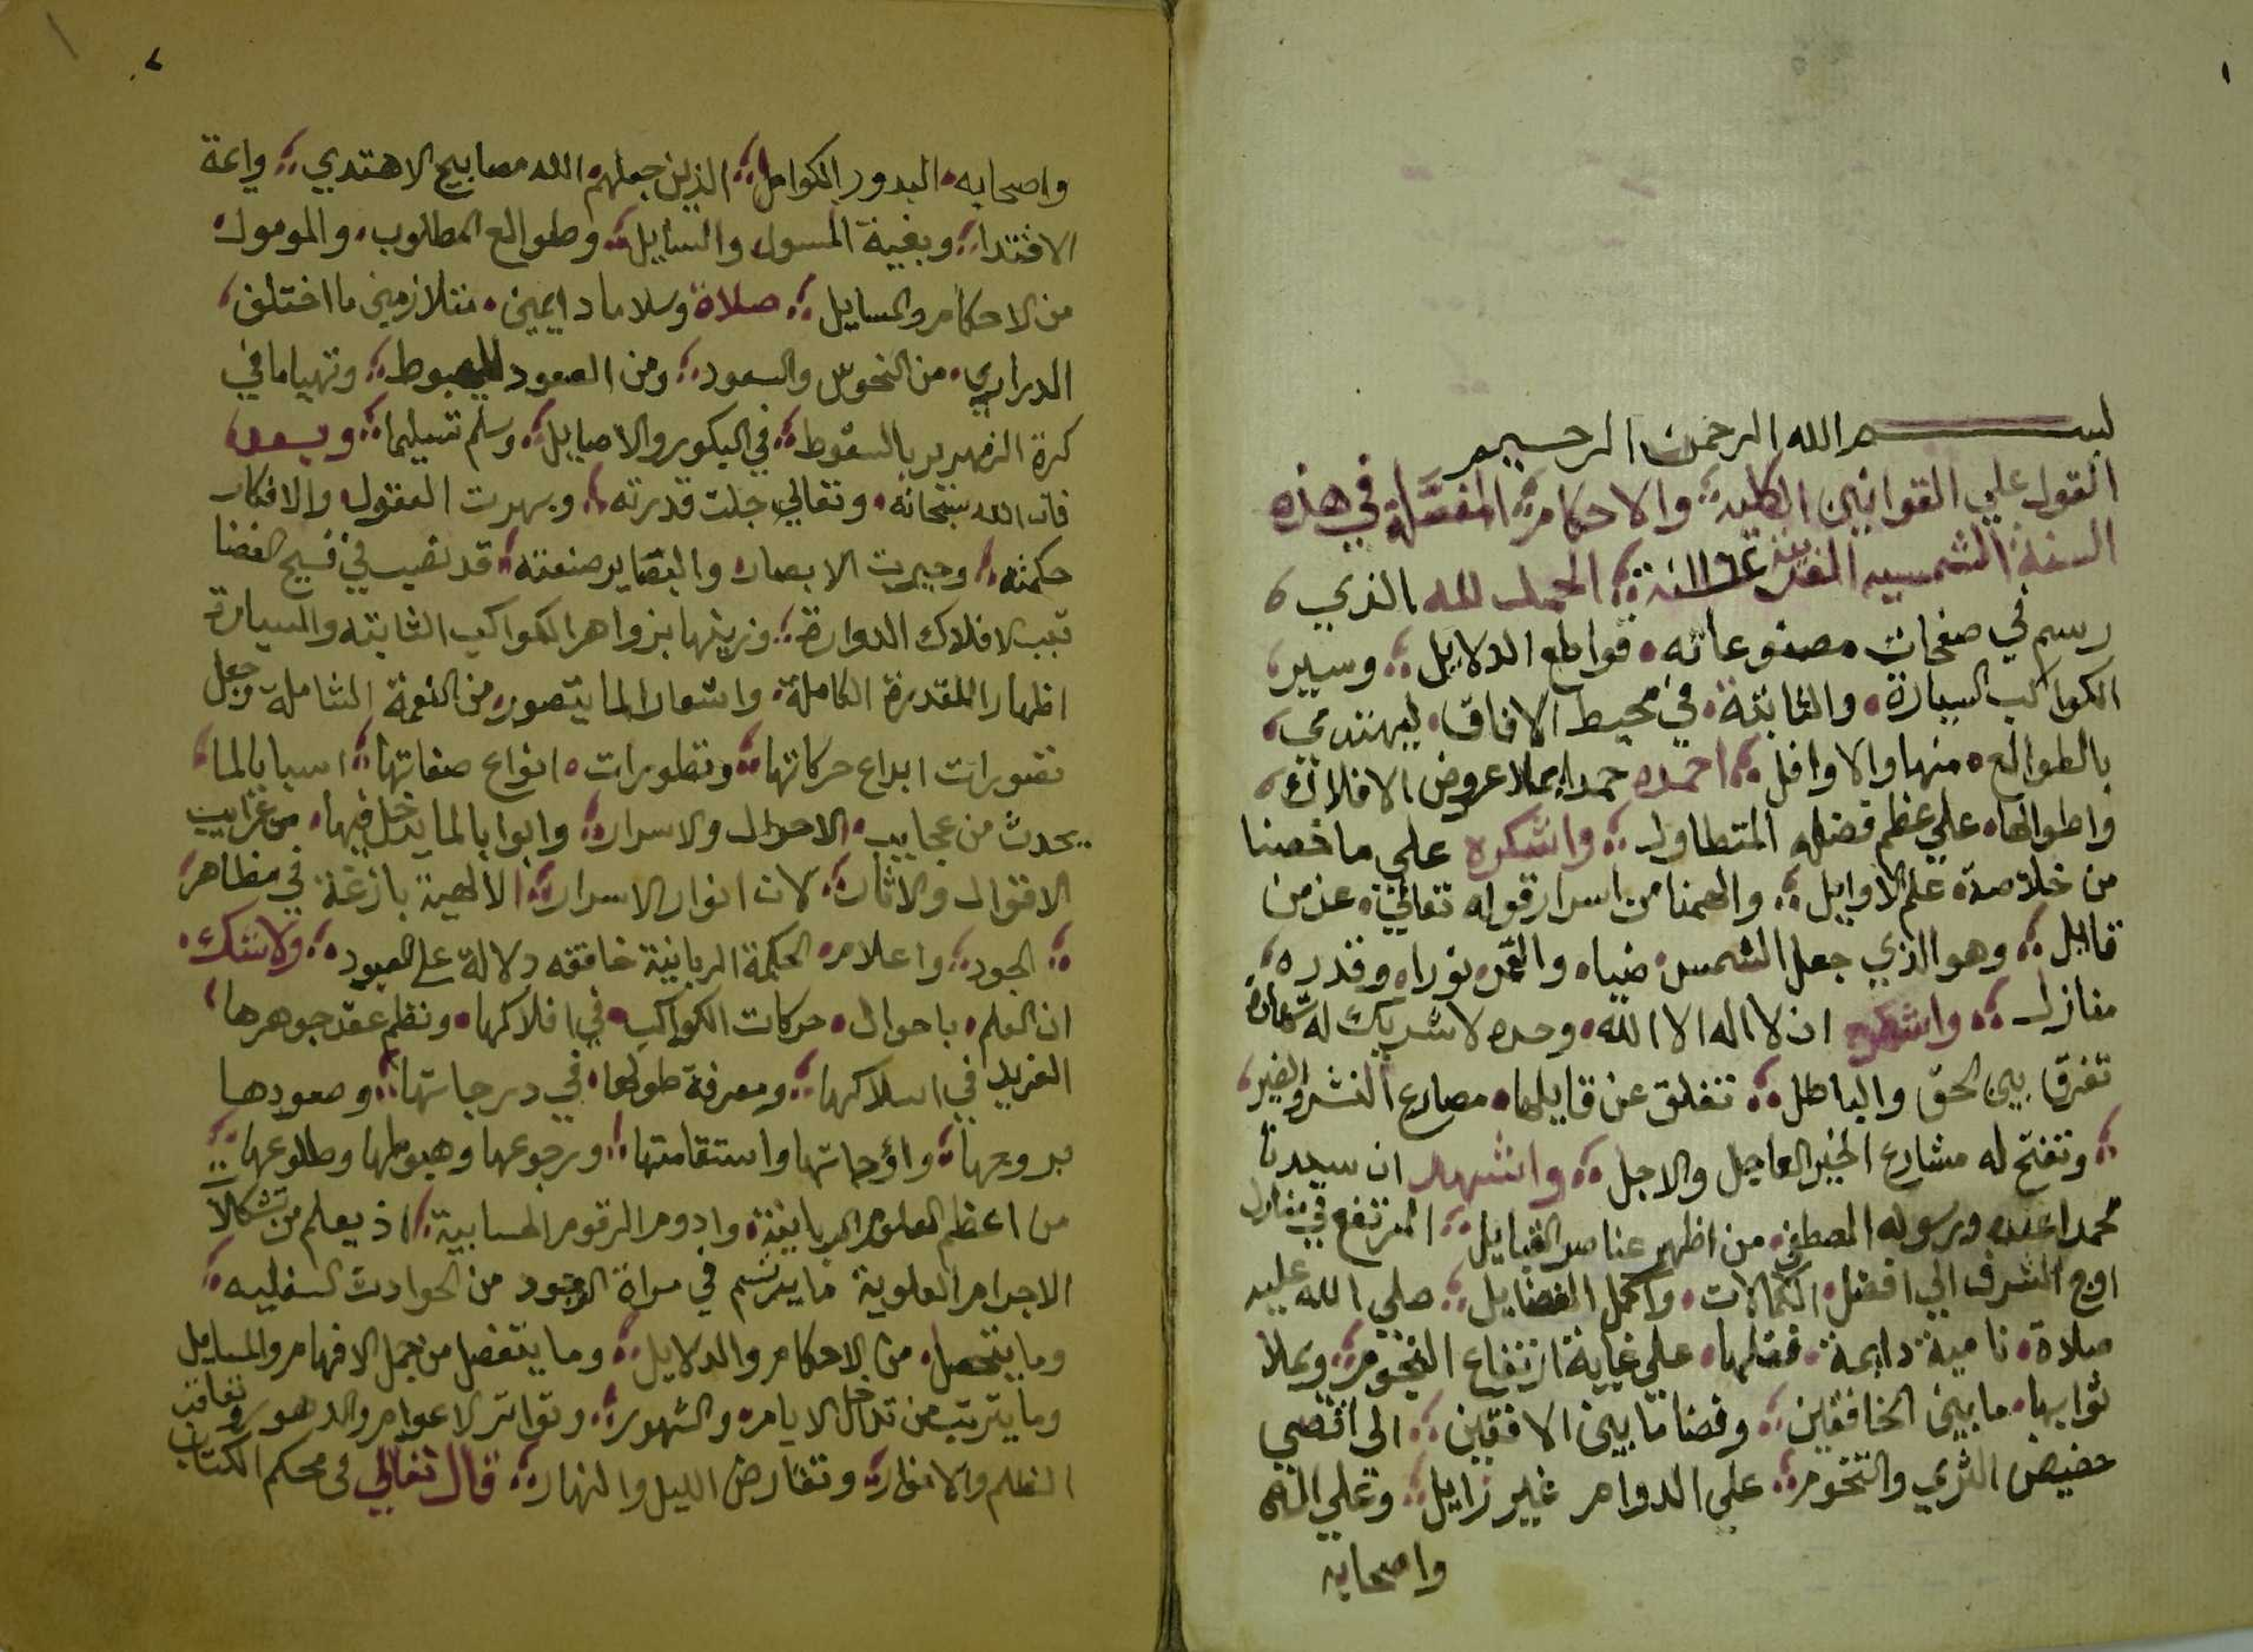 ١
بسم الله الرحمن الرحيم
القول علي القوانين الكليه والاحكام المفصله في هذه
السنة الشمسيه ١١٦٤ سنة الحمد لله الذي
رسم في صفحات مصنوعاته قواطع الدلايل وسير
الكواكب السيارة والثابتة في محيط الافاق ليهتدي
بالطوالع منها والاوافل احمده حمدا يملا عروض الافلاك
واطوالها علي عظم فضله المتطاول واشكره علي ما خصنا
من خلاصة علم الاوايل والهمنا من اسرار قوله تعالي عز من
قايل وهو الذي جعل الشمس ضياء والقمر نورا وقدره
منازل واشهد ان لا اله الا الله وحده لا شريك له شهادة
تفرق بين الحق والباطل تغلق عن قايلها مصارع الشر والضير
وتفتح له مشارع الخير العاجل والاجل واشهد ان سيدنا
محمدا عبده ورسوله المصطفي من اظهر عناصر القبايل المرتفع في منازل
اوج الشرف الي افضل الكمالات واكمل الفضايل صلي الله عليه
صلاة نامية دايمة فضلها علي غاية ارتفاع النجوم ويملا
ثوابها ما بين الخافقين وفضا ما بين الافقين الي اقصي
حضيض الثري والتخوم علي الدوام غير زايل وعلي اله
واصحابه
٢
واصحابه البدور الكوامل الذين جعلهم الله مصابيح الاهتدي وايمة
الاقتدا وبغية المسول والسايل وطوالع المطلوب والمومول
من الاحكام والمسايل صلاة وسلاما دايمين متلازمين ما اختلف
الدراري من النحوس والسعود ومن الصعود للهبوط وتهيا ما في
كرة الزمهرير بالسقوط في البكور والاصايل وسلم تسليما وبعد
فان الله سبحانه وتعالي جلت قدرته وبهرت العقول والافكار
حكمته وحيرت الابصار والبصاير صنعته قد نصب في فسيح الفضا
قبب الافلاك الدوارة وزينها بزواهر الكواكب الثابته والسيارة
اظهارا للقدرة الكاملة واشعارا لما يتصور من النعمة الشاملة وجعل
تصورات ابداع حركاتها وتطورات انواع صفاتها اسبابا لما
يحدث من عجايب الاحوال والاسرار وابوابا لما يدخل فيها من غرايب
الاقوال والاثار لان انوار الاسرار الالهية بازغة في مظاهر
الجود واعلام الحكمة الربانية خافقه دلالة علي المعبود ولا شك
ان العلم باحوال حركات الكواكب في افلاكها ونظم عقد جوهرها
الفريد في اسلاكها ومعرفة طولها في درجاتها وصعودها
بروجها واوجاتها واستقامتها ورجوعها وهبوطها وطلوعها
من اعظم العلوم الربانية وادوم الرقوم الحسابية اذ يعلم من تشكلات
الاجرام العلوية ما يرتسم في مراة الوجود من الحوادث السفليه
وما يتحصل من الاحكام والدلايل وما يتفصل من جمل الافهام والمسايل
وما يترتب من تداخل الايام والشهور وتواتر الاعوام والدهور وتعاقب
الظلم والانوار وتقارض الليل والنهار قال تعالي في محكم الكتاب